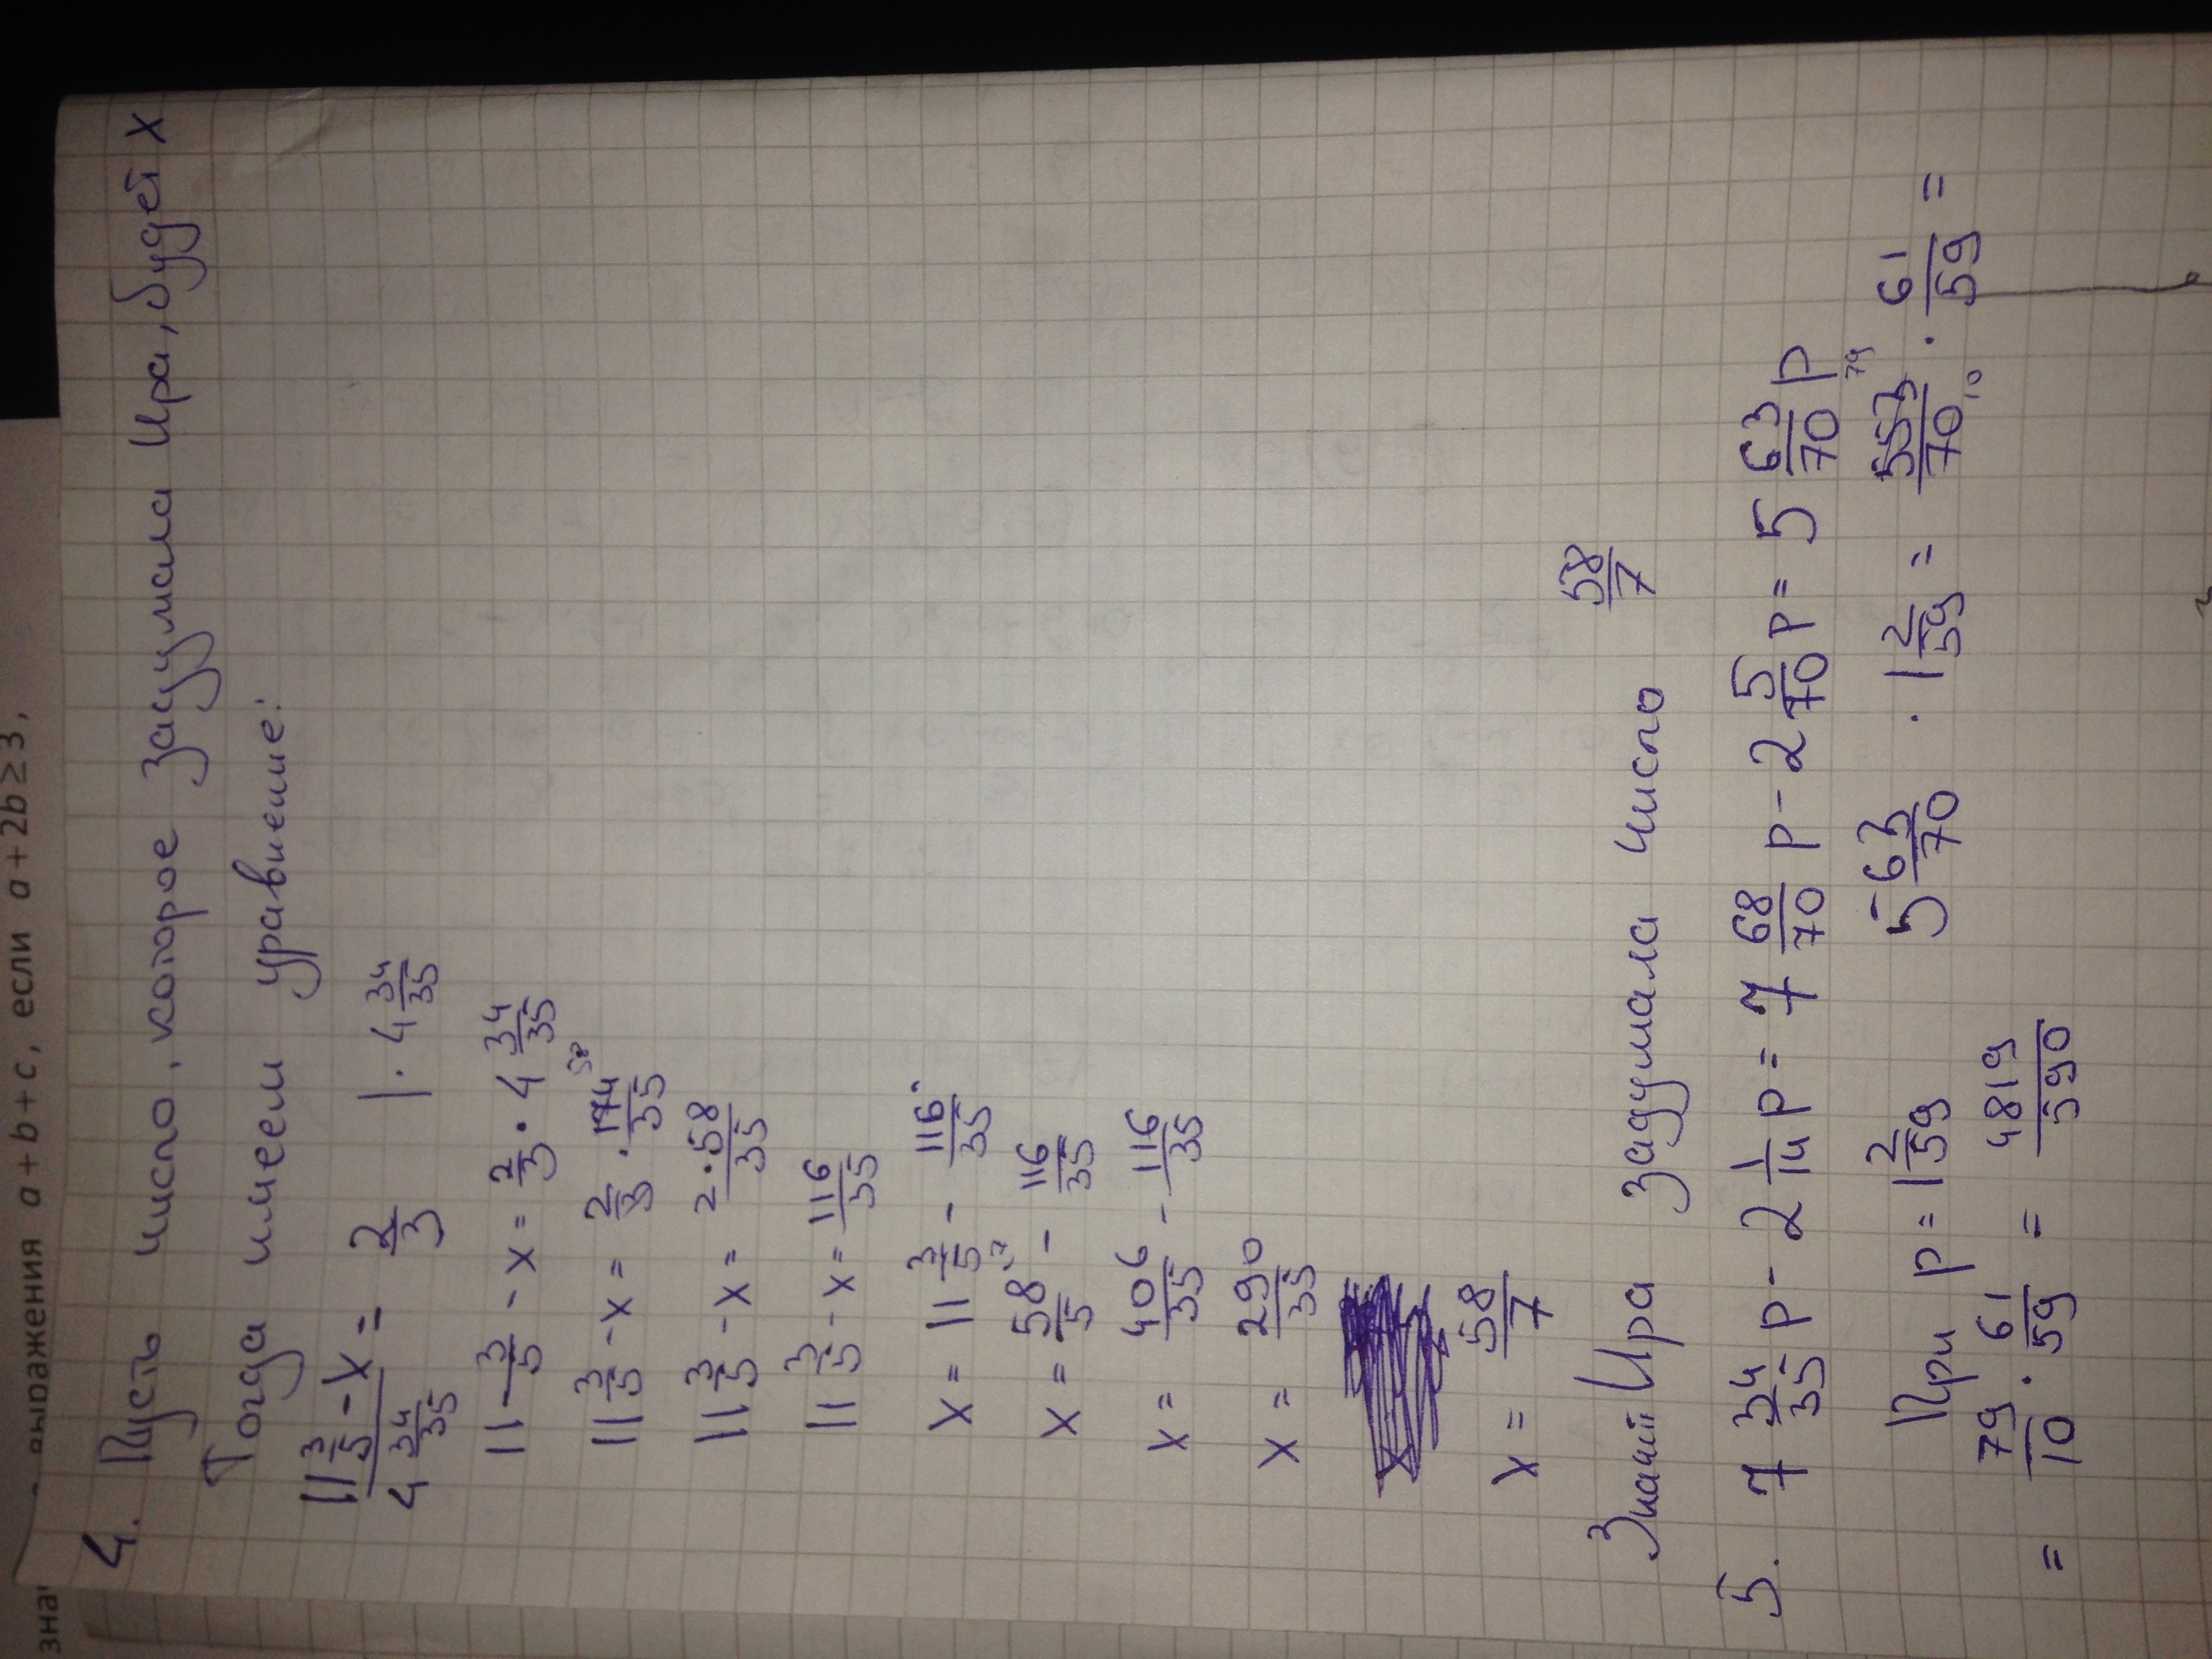 выражения a + b + c, если a + 2b ≥ 3,
4. Пусть число, которое задумала Ира, будет x
Тогда имеем уравнение:
(11 3/5 - x)/(4 34/35) = 2/3 | · 4 34/35
11 3/5 - x = 2/3 · 4 34/35
11 3/5 - x = 2/3 · 174/35 58
11 3/5 - x = (2 · 58)/35
11 3/5 - x = 116/35
x = 11 3/5 - 116/35
x = 58/5 - 116/35
x = 406/35 - 116/35
x = 290/35
x = 58/7
Ира задумала число 58/7
5. 7 34/35 p - 2 1/14 p = 7 68/70 p - 2 5/70 p = 5 63/70 p
При p = 1 2/59 5 63/70 · 1 2/59 = 553/70 · 61/59 =
79 10
= 79/10 · 61/59 = 4819/590